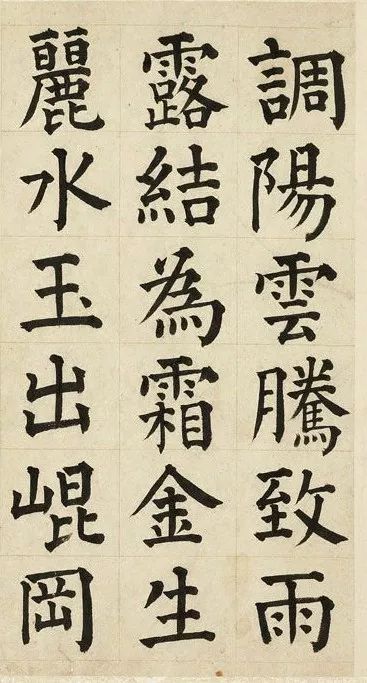 調陽雲騰致雨
露結為霜金生
麗水玉出崐岡